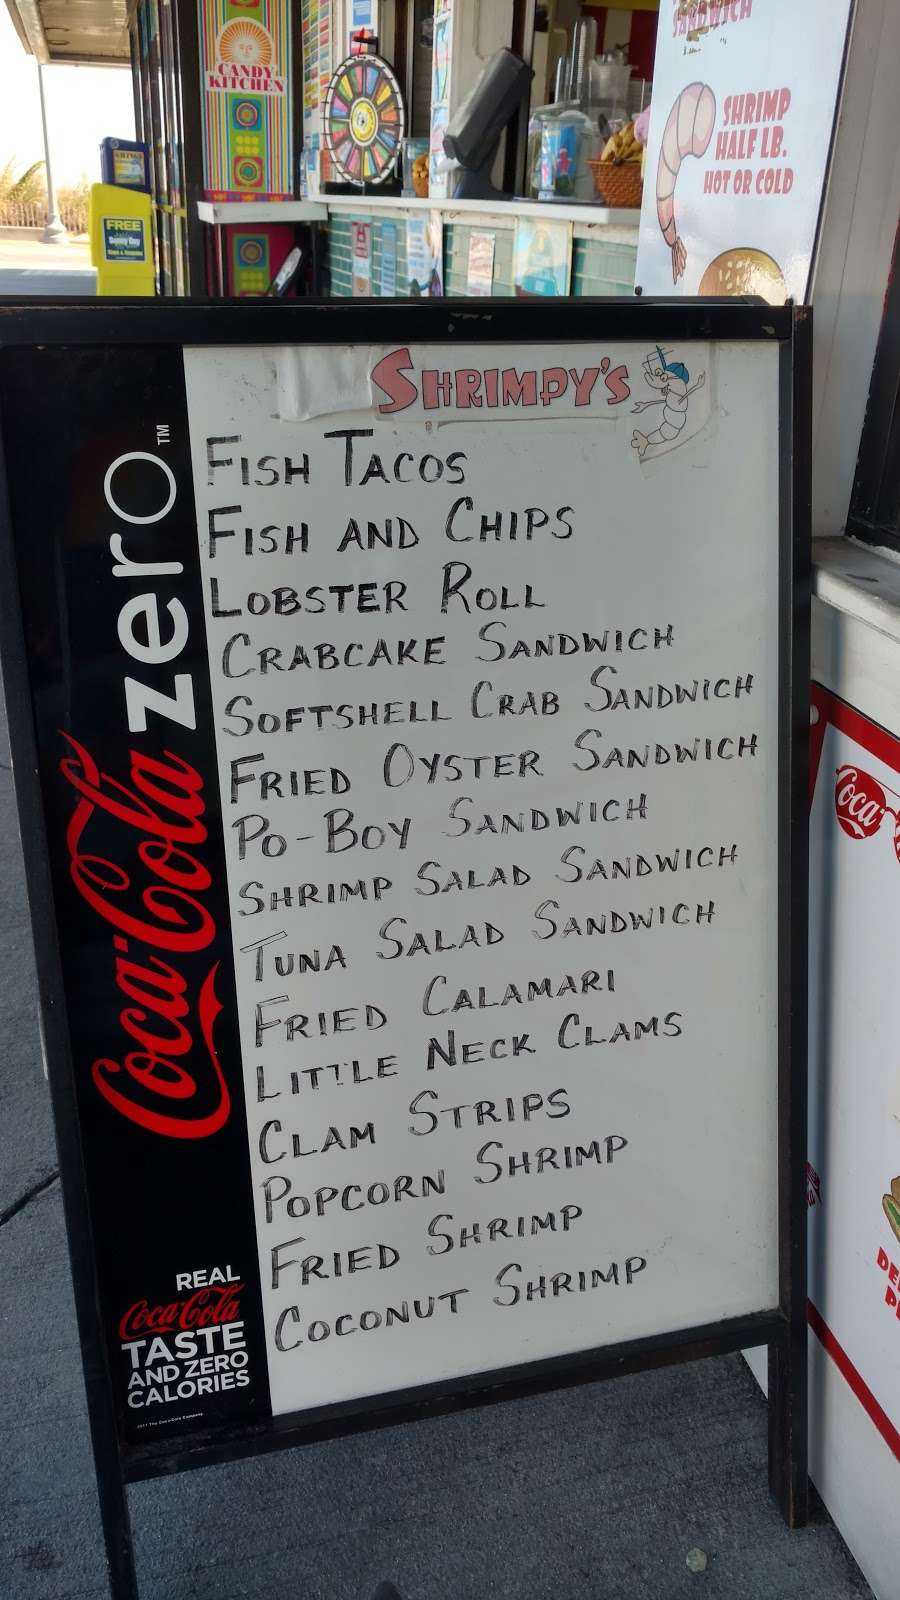 CANDY
KITCHEN
FREE
Sunny Day
SANDWICH
SHRIMP
HALF LB.
HOT OR COLD
SHRIMPY'S
FISH TACOS
FISH AND CHIPS
LOBSTER ROLL
CRABCAKE SANDWICH
SOFTSHELL CRAB SANDWICH
FRIED OYSTER SANDWICH
PO-BOY SANDWICH
SHRIMP SALAD SANDWICH
TUNA SALAD SANDWICH
FRIED CALAMARI
LITTLE NECK CLAMS
CLAM STRIPS
POPCORN SHRIMP
FRIED SHRIMP
COCONUT SHRIMP
Coca-Cola zero™
REAL
Coca-Cola
TASTE
AND ZERO
CALORIES
2011 The Coca-Cola Company
Coca